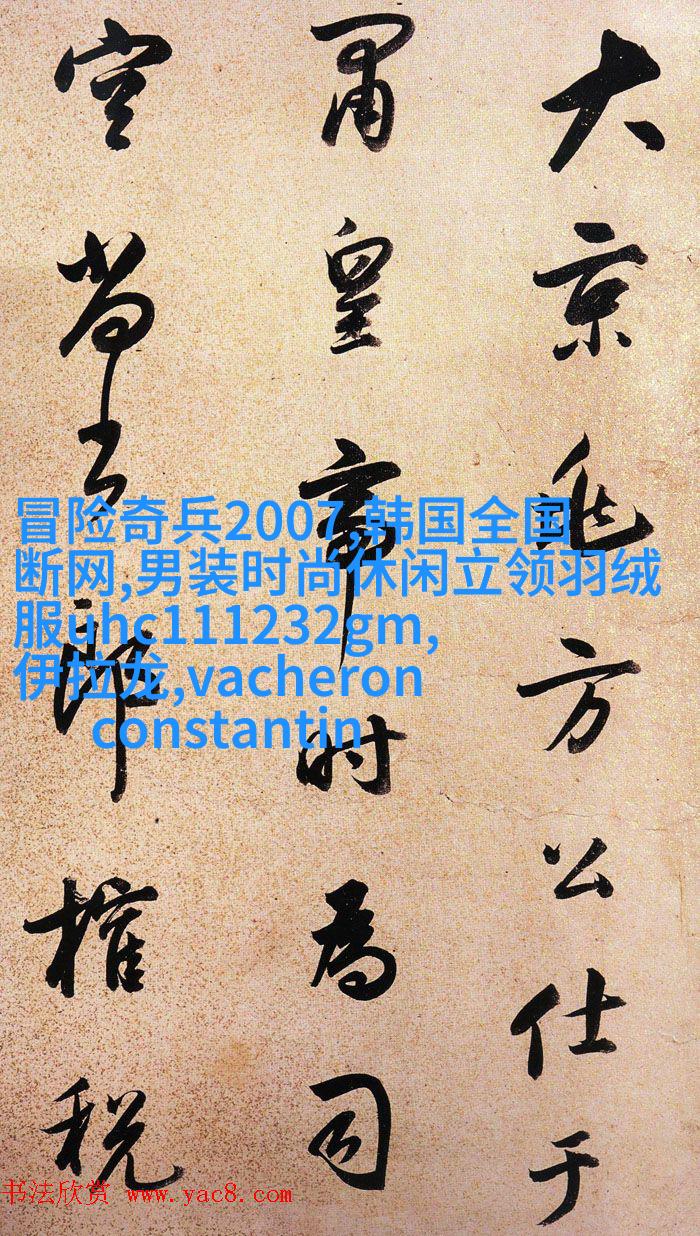 大京兆方公仕于
肅皇帝时為司
空尚书郎榷税
冒险奇兵2007,韩国全国
断网,男装时尚休闲立领羽绒
服uhc111232gm,
伊拉龙,vacheron
constantin
书法欣赏 www.yac8.com